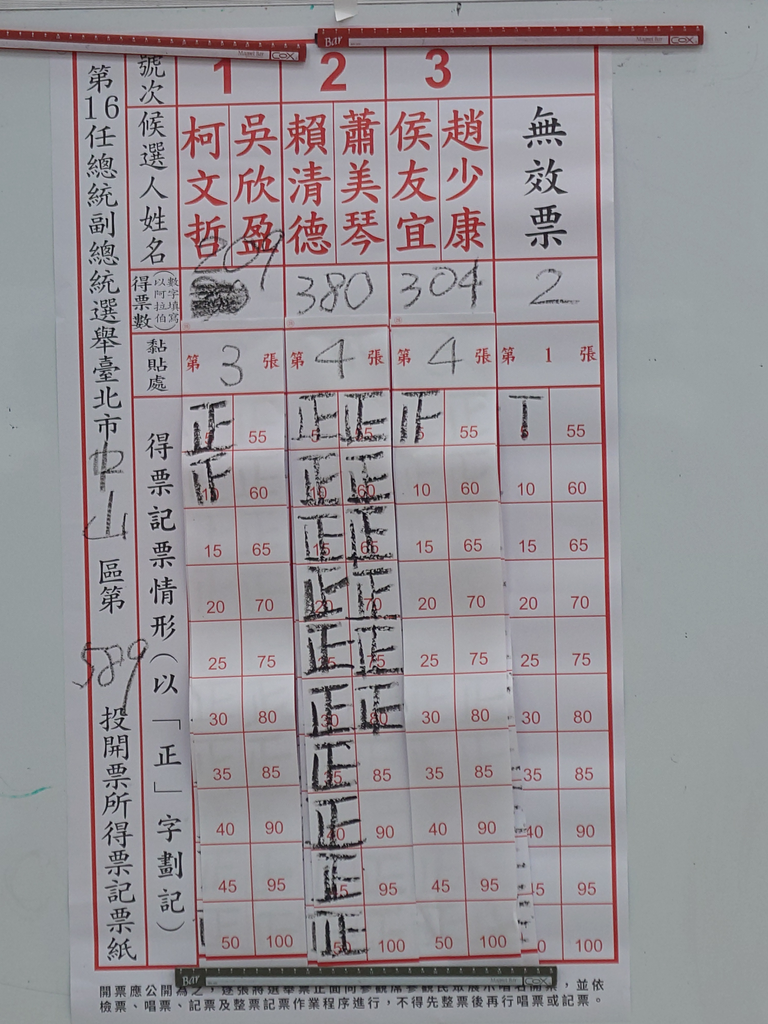 Bar
Magnet Bar
COX
Magnet Bar
COX
第16任總統副總統選舉臺北市中山區第589投開票所得票記票紙
號次 1 2 3
候選人姓名 柯文哲 吳欣盈 賴清德 蕭美琴 侯友宜 趙少康 無效票
得票數(以阿拉伯數字填寫) 209 380 304 2
黏貼處 第3張 第4張 第4張 第1張
得票記票情形(以「正」字劃記)
正 55 正 正 55 55
10 60 正 正 10 60 10 60
15 65 正 正 15 65 15 65
20 70 正 正 20 70 20 70
25 75 正 正 25 75 25 75
30 80 正 正 30 80 30 80
35 85 正 85 35 85 35 85
40 90 正 90 40 90 40 90
45 95 正 95 45 95 45 95
50 100 正 100 50 100 100
Bar
開票應公開為之，逐張將選舉票正面向參觀席參觀民眾展示唱名開票，並依
檢票、唱票、記票及整票記票作業程序進行，不得先整票後再行唱票或記票。